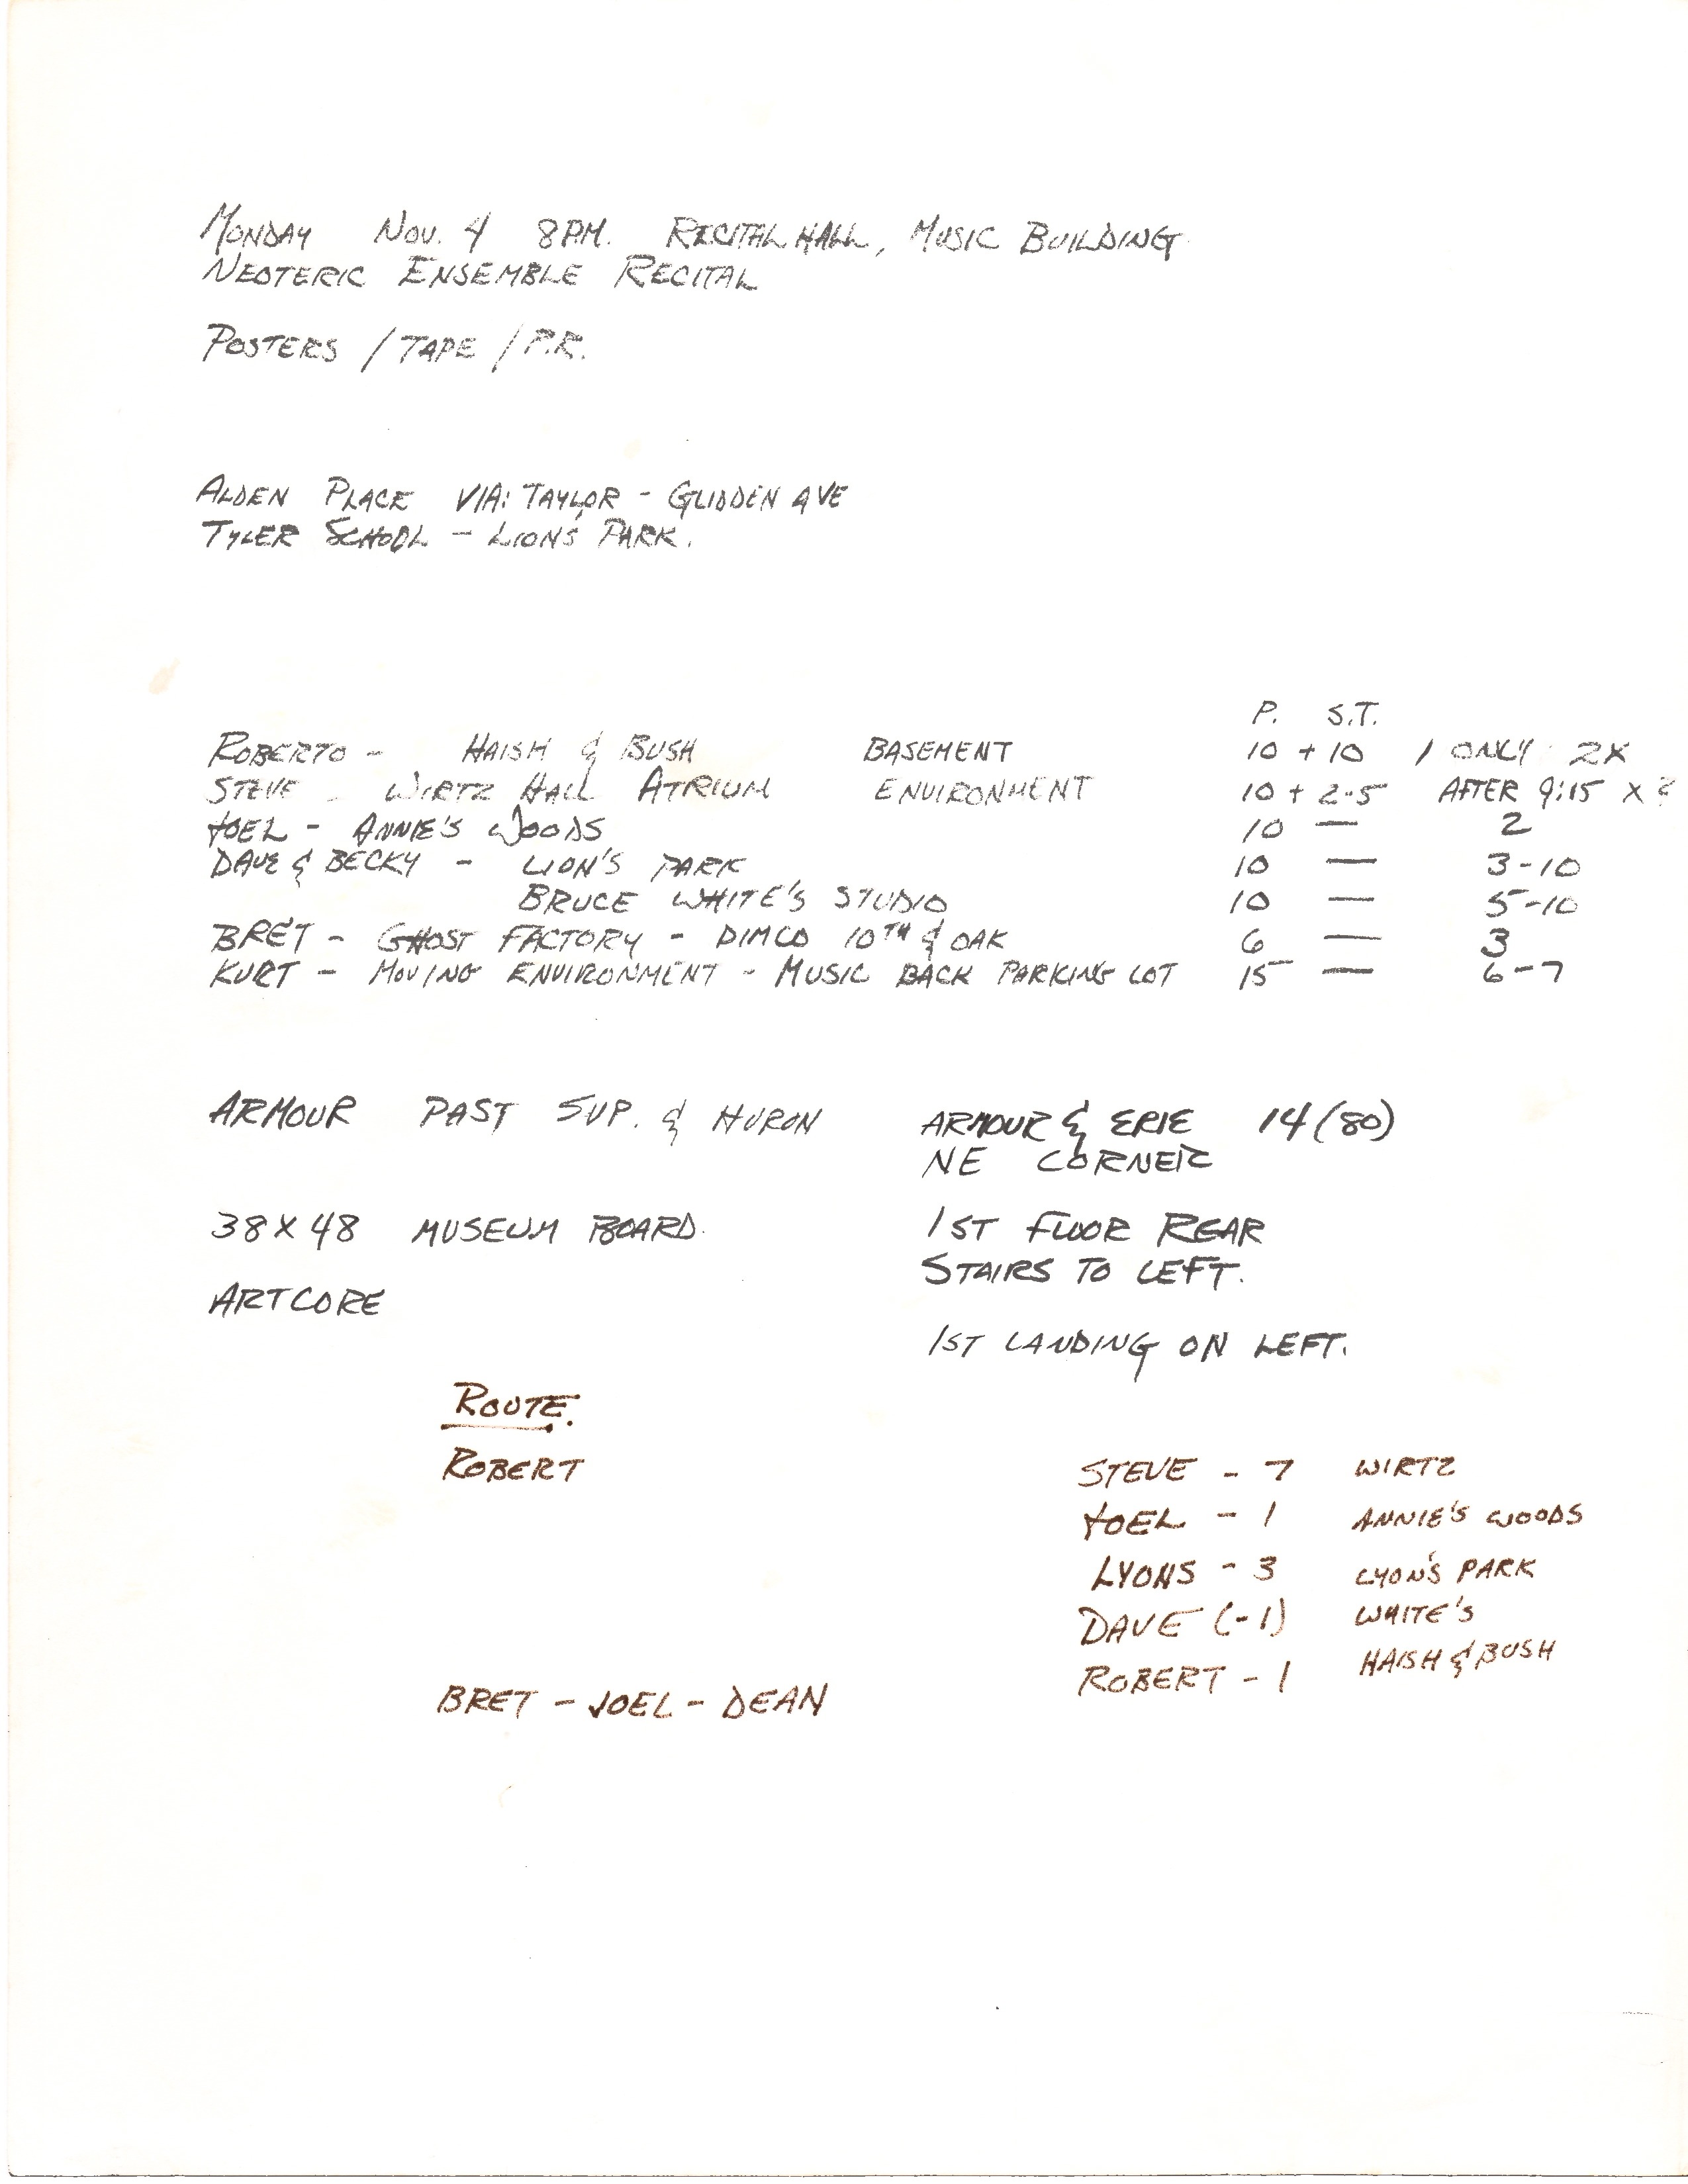 MONDAY NOV. 4 8 P.M. RECITAL HALL, MUSIC BUILDING
NEOTERIC ENSEMBLE RECITAL
POSTERS / TAPE / P.R.
ALDEN PLACE VIA: TAYLOR - GLIDDEN AVE
TYLER SCHOOL - LION'S PARK.
P. S.T.
ROBERTO - HAISH & BUSH BASEMENT 10 + 10 1 ONLY 2X
STEVE - WIRTZ HALL ATRIUM ENVIRONMENT 10 + 2-5 AFTER 9:15 X ?
JOEL - ANNIE'S WOODS 10 — 2
DAVE & BECKY - LION'S PARK 10 — 3-10
BRUCE WHITE'S STUDIO 10 — 5-10
BRET - GHOST FACTORY - DIMCO 10TH & OAK 6 — 3
KURT - MOVING ENVIRONMENT - MUSIC BACK PARKING LOT 15 — 6-7
ARMOUR PAST SUP. & HURON
ARMOUR & ERIE 14 (80)
NE CORNER
38 X 48 MUSEUM BOARD.
1ST FLOOR REAR
STAIRS TO LEFT.
ARTCORE
1ST LANDING ON LEFT.
ROUTE.
ROBERT
STEVE - 7 WIRTZ
JOEL - 1 ANNIE'S WOODS
LYONS - 3 LYON'S PARK
DAVE (-1) WHITE'S
ROBERT - 1 HAISH & BUSH
BRET - JOEL - DEAN